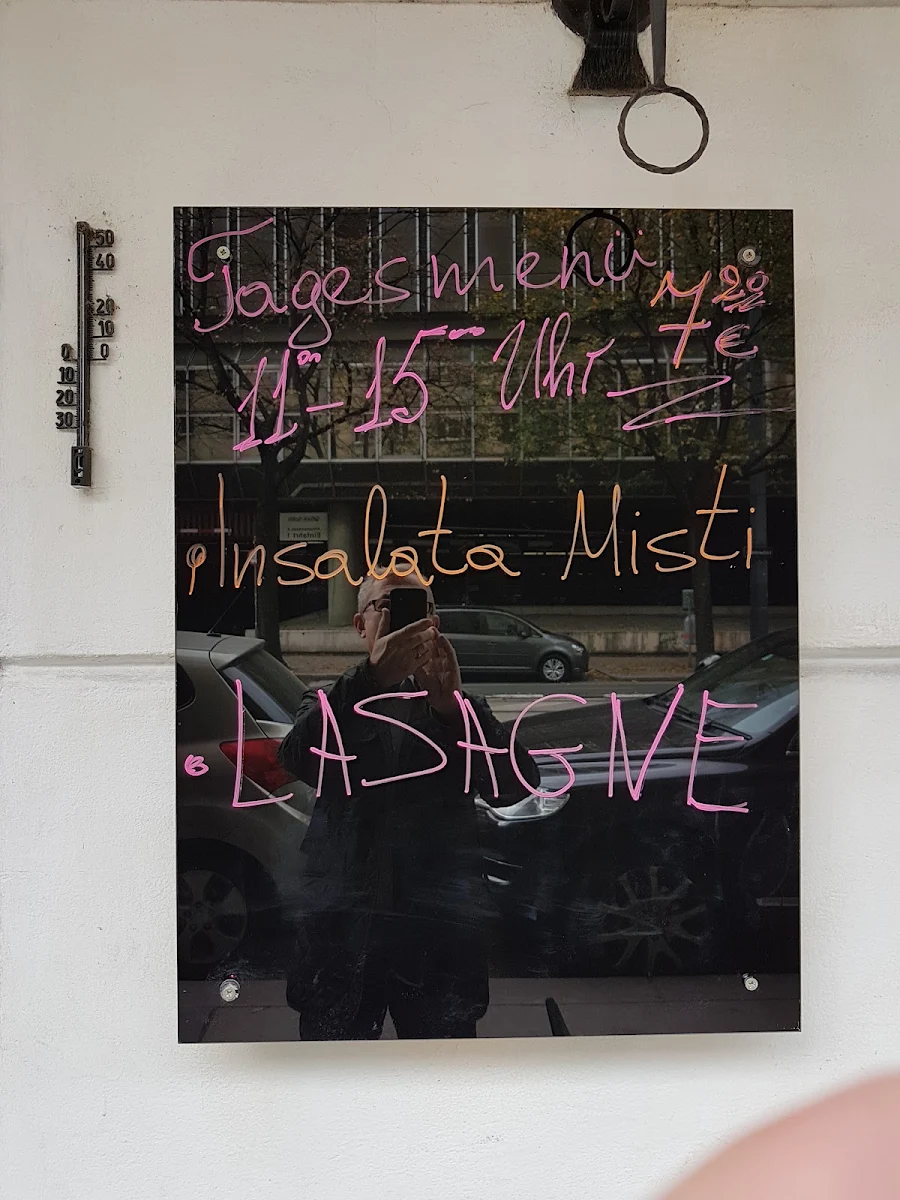 Tagesmenü 7 20 €
11 00 - 15 00 Uhr
Insalata Misti
LASAGNE
50
40
20
10
0 0
10
20
30